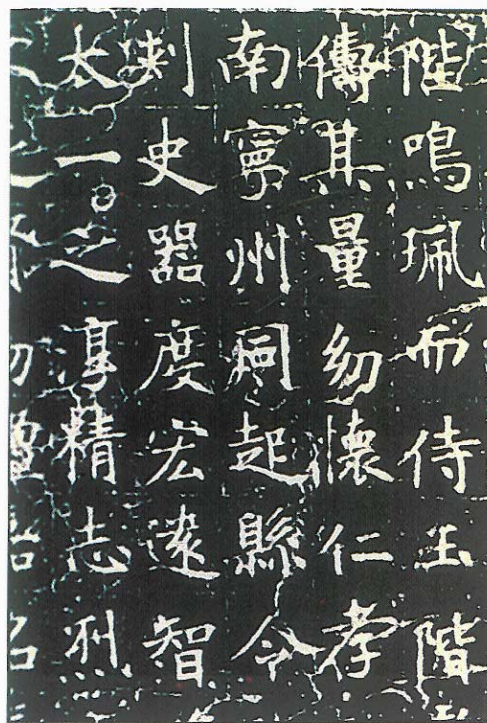 陛鳴珮而侍玉階
傳其量幼懷仁孝
南寧州同起縣令
刺史器度宏遠智
太一之淳精志烈